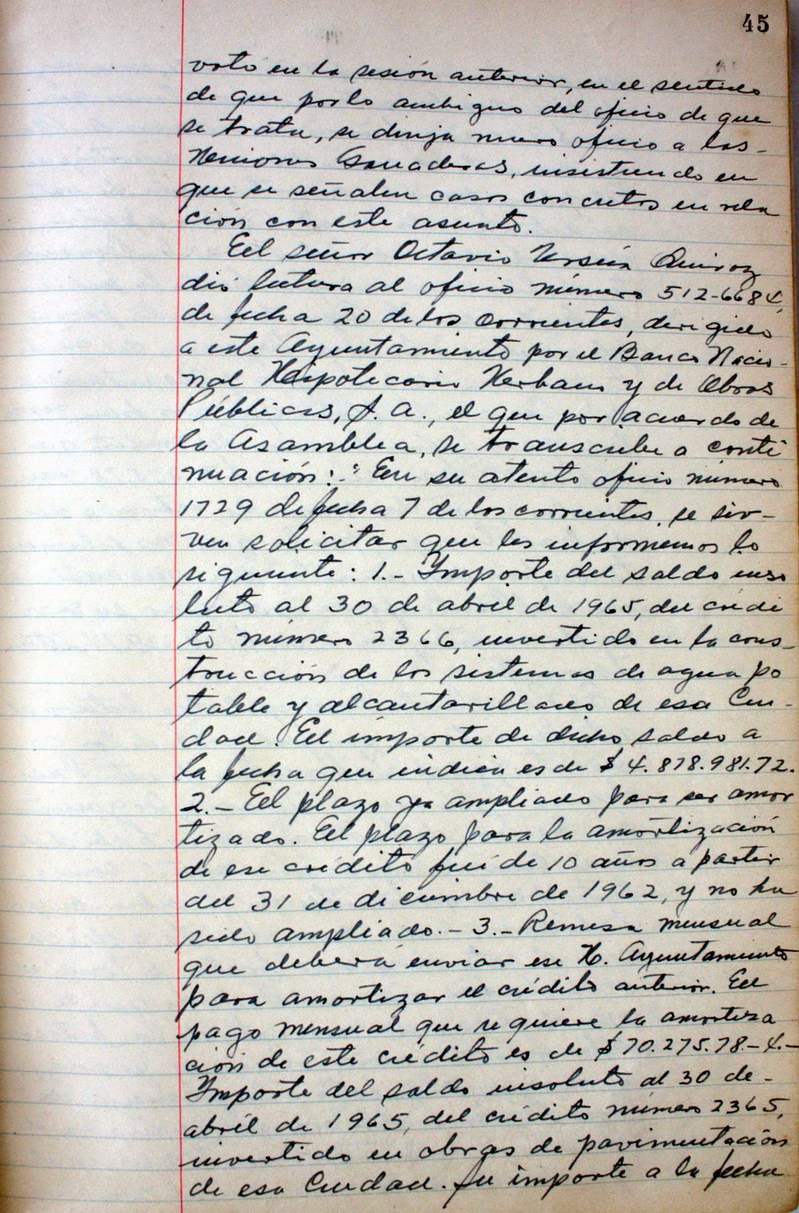 45
voto en la sesión anterior, en el sentido
de que por lo ambiguo del oficio de que
se trata, se dirija nuevo oficio a las-
Uniones Ganaderas, insistiendo en
que se señalen casos concretos en rela
ción con este asunto.
El señor Octavio Ursúa Quiroz
dió lectura al oficio número 512-6684,
de fecha 20 de los corrientes, dirigido
a este Ayuntamiento por el Banco Nacio-
nal Hipotecario Urbano y de Obras
Públicas, S. A., el que por acuerdo de
la Asamblea, se transcribe a conti
nuación: "En su atento oficio número
1729 de fecha 7 de los corrientes, se sir-
ven solicitar que les informemos lo
siguiente: 1.- Importe del saldo inso
luto al 30 de abril de 1965, del crédi
to número 2366, invertido en la cons-
trucción de los sistemas de agua po
table y alcantarillado de esa Ciu-
dad. El importe de dicho saldo a
la fecha que indica es de $ 4.878.981.72.
2.- El plazo ya ampliado para ser amor
tizado. El plazo para la amortización
de ese crédito fué de 10 años a partir
del 31 de diciembre de 1962, y no ha
sido ampliado.- 3.- Remesa mensual
que deberá enviar ese H. Ayuntamiento
para amortizar el crédito anterior. El
pago mensual que requiere la amortiza
ción de este crédito es de $ 70.275.78.- 4.-
Importe del saldo insoluto al 30 de-
abril de 1965, del crédito número 2365,
invertido en obras de pavimentación
de esa Ciudad. Su importe a la fecha